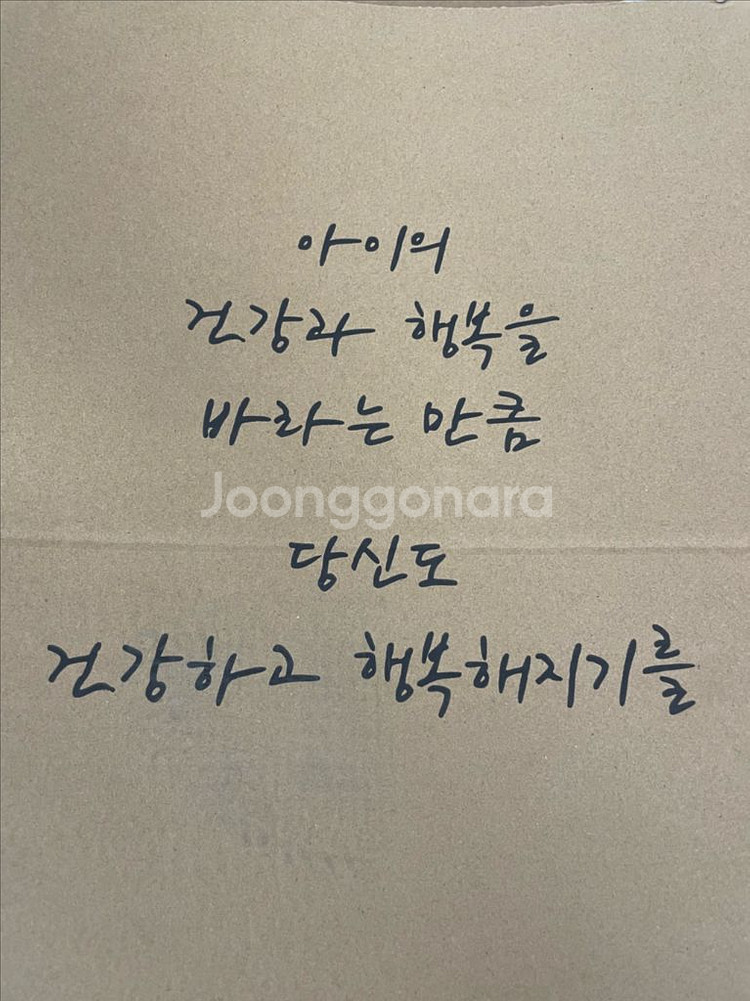 아이의
건강과 행복을
바라는 만큼
Joonggonara
당신도
건강하고 행복해지기를